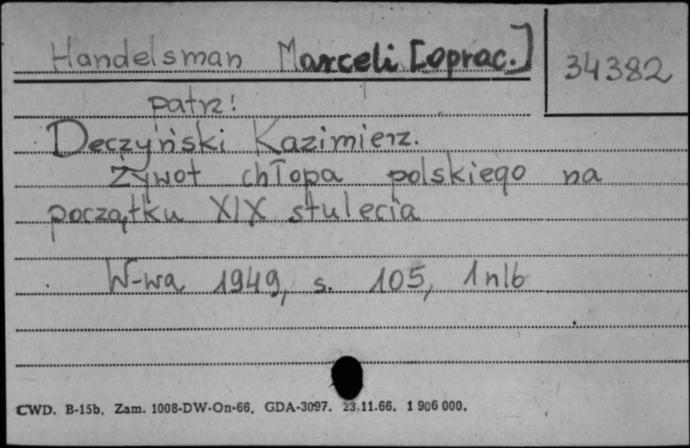 Handelsman Marceli [oprac.]
34382
patrz!
Deczyński Kazimierz.
Żywot chłopa polskiego na
początku XIX stulecia
W-wa 1949, s. 105, 1 nlb
CWD. B-15b. Zam. 1008-DW-On-66. GDA-3097. 23.11.66. 1 906 000.